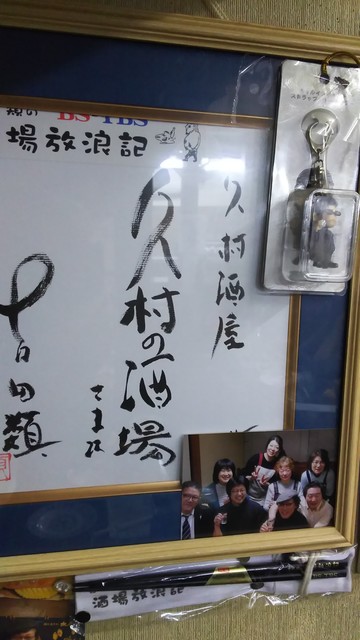 BS-TBS
場放浪記
久村酒屋
久村の酒場
さま江
吉田類
ストラップ
酒場放浪記